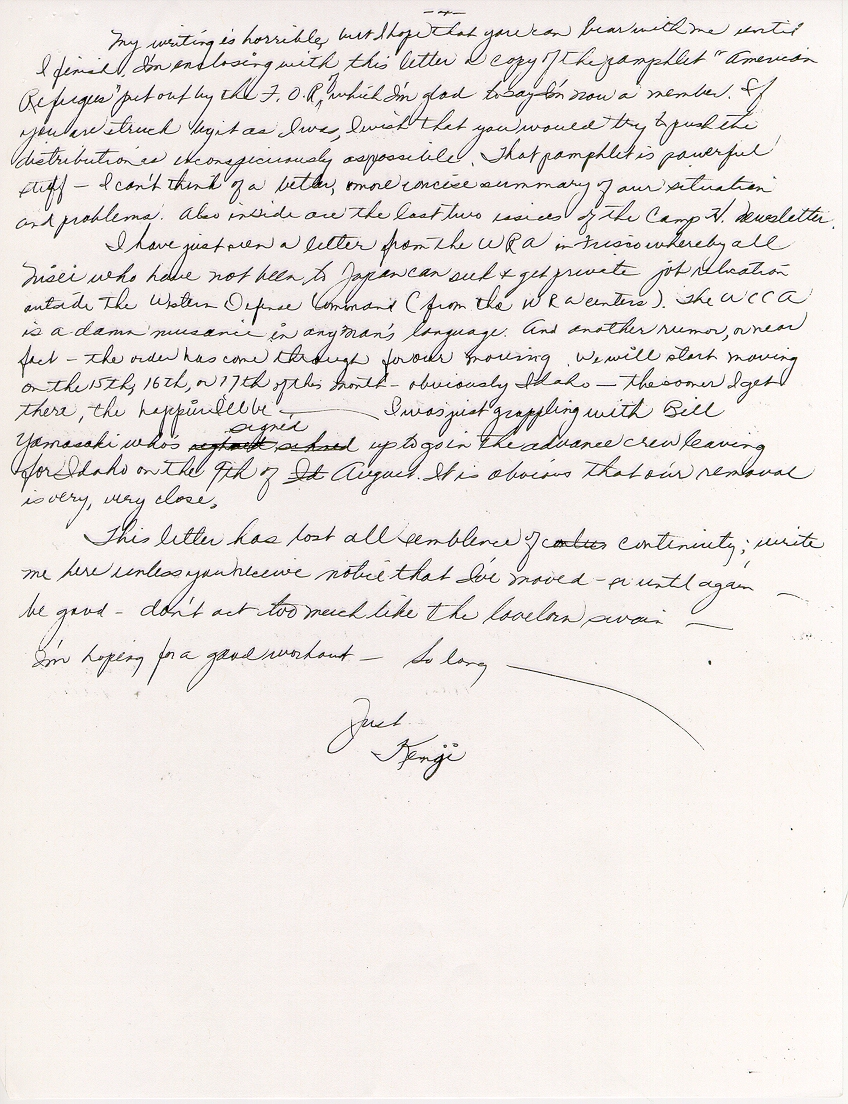 My writing is horrible, but I hope that you can bear with me until
I finish. I'm enclosing with this letter a copy of the pamphlet "American
Refugees" put out by the F.O.R., which I'm glad to say I'm now a member. If
you are struck by it as I was, I wish that you would try to push the
distribution as inconspiciously as possible. That pamphlet is powerful
stuff — I can't think of a better, more concise summary of our situation
and problems. Also inside are the last two issues of the Camp H. Newsletter.
I have just seen a letter from the WRA in Frisco whereby all
Nisei who have not been to Japan can seek & get private job relocation
outside the Western Defense Command (from the WRA centers). The WCCA
is a damn nusance in any man's language. And another rumor, or near
fact — the order has come through for our moving. We will start moving
on the 15th, 16th, or 17th of this month — obviously Idaho — the sooner I get
there, the happier I'll be — I was just grappling with Bill
signed
Yamasaki who's up to go in the advance crew leaving
for Idaho on the 9th of August. It is obvious that our removal
is very, very close.
This letter has lost all semblence of continuity; write
me here unless you receive notice that I've moved — so until again —
be good — don't act too much like the lovelorn swain —
I'm hoping for a good workout — So long
Just
Kenji